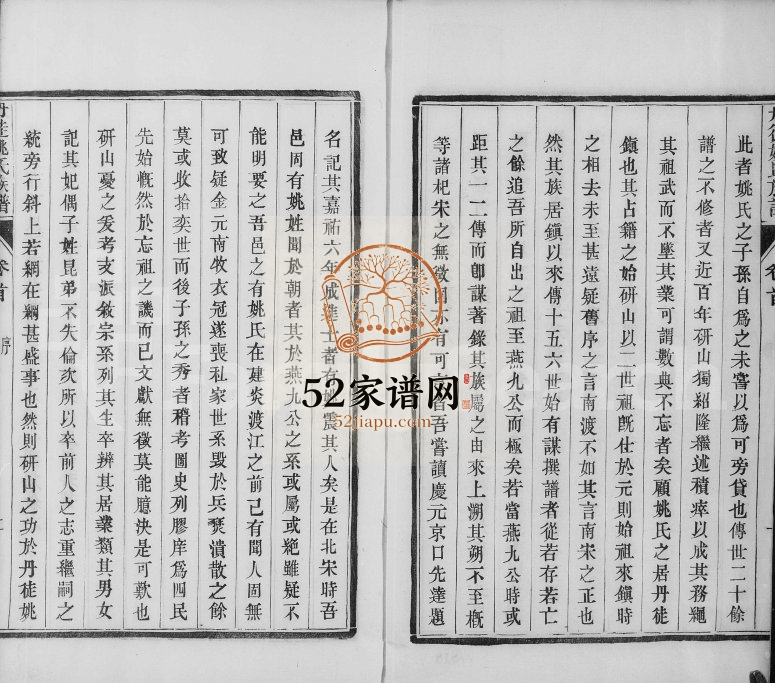 此者姚氏之子孫自爲之未嘗以爲可旁貸也傳世二十餘
譜之不修者又近百年硏山獨紹隆繼述積瘁以成其務繩
其祖武而不墜其業可謂數典不忘者矣顧姚氏之居丹徒
鎭也其占籍之始硏山以二世祖旣仕於元則始祖來鎭時
之相去未至甚遠疑舊序之言南渡不如其言南宋之正也
然其族居鎭以來傳十五六世始有謀撰譜者從若存若亡
之餘追吾所自出之祖至燕九公而極矣若當燕九公時或
距其一二傳而卽謀著錄其族屬之由來上溯其朔不至槪
等諸杞宋之無徵 可 吾嘗讀慶元京口先達題
名記其嘉祐六年成進士者有姚震其人矣是在北宋時吾
邑固有姚姓聞於朝者其於燕九公之系或屬或絕雖疑不
能明要之吾邑之有姚氏在建炎渡江之前已有聞人固無
可致疑金元南牧衣冠遂喪私家世系毀於兵燹潰散之餘
莫或收拾奕世而後子孫之秀者稽考圖史列膠庠爲四民
先始慨然於忘祖之譏而已文獻無徵莫能臆決是可歎也
硏山憂之爰考支派敘宗系列其生卒辨其居業類其男女
記其妃偶子姓昆弟不失倫次所以卒前人之志重繼嗣之
統旁行斜上若網在綱甚盛事也然則硏山之功於丹徒姚
丹徒姚氏族譜
卷首
序
52家谱网
52jiapu.com